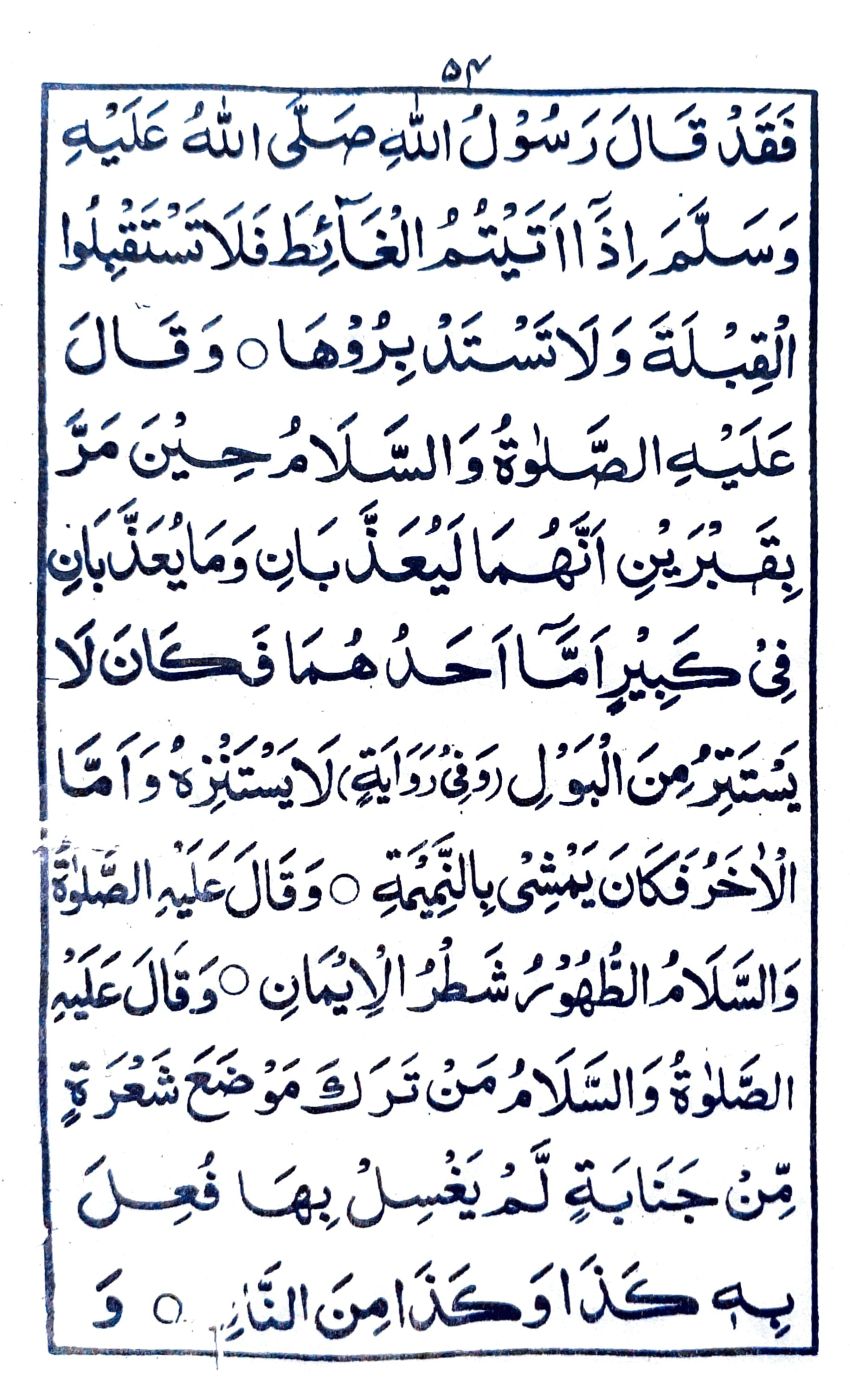 ۵۴
فَقَدْ قَالَ رَسُوْلُ اللهِ صَلَّى اللهُ عَلَيْهِ
وَسَلَّمَ اِذَآ اَتَيْتُمُ الْغَآئِطَ فَلَا تَسْتَقْبِلُوا
الْقِبْلَةَ وَلَا تَسْتَدْبِرُوْهَا ○ وَقَالَ
عَلَيْهِ الصَّلٰوةُ وَالسَّلَامُ حِيْنَ مَرَّ
بِقَبْرَيْنِ اَنَّهُمَا لَيُعَذَّبَانِ وَمَا يُعَذَّبَانِ
فِىْ كَبِيْرٍ اَمَّآ اَحَدُهُمَا فَكَانَ لَا
يَسْتَتِرُ مِنَ الْبَوْلِ (وَفِىْ رَوَايَةٍ) لَا يَسْتَنْزِهُ وَاَمَّا
الْاٰخَرُ فَكَانَ يَمْشِىْ بِالنَّمِيْمَةِ ○ وَقَالَ عَلَيْهِ الصَّلٰوةُ
وَالسَّلَامُ الطُّهُوْرُ شَطْرُ الْاِيْمَانِ ○ وَقَالَ عَلَيْهِ
الصَّلٰوةُ وَالسَّلَامُ مَنْ تَرَكَ مَوْضَعَ شَعْرَةٍ
مِّنْ جَنَابَةٍ لَّمْ يَغْسِلْ بِهَا فُعِلَ
بِهٖ كَذَا وَكَذَا مِنَ النَّارِ ○ وَ